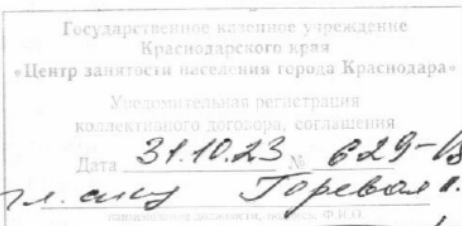 Государственное казенное учреждение
Краснодарского края
«Центр занятости населения города Краснодара»
Уведомительная регистрация
коллективного договора, соглашения
Дата 31.10.23 № 629-
гл. спец Горевая
наименование должности, подпись, Ф.И.О.